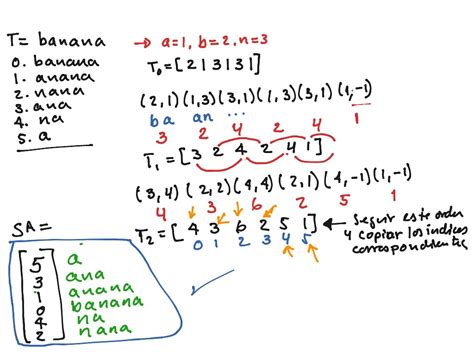 T= banana → a=1, b=2, n=3
0. banana
1. anana
2. nana
3. ana
4. na
5. a
T₀=[213131]
(2,1)(1,3)(3,1)(1,3)(3,1)(1,-1)
ba an ...
3 2 4 2 4 1
T₁=[3 2 4 2 4 1]
(3,4)(2,2)(4,4)(2,1)(4,-1)(1,-1)
4 3 6 2 5 1
T₂=[4 3 6 2 5 1]
0 1 2 3 4 5
← Seguir este orden
y copiar los índices
correspondientes
SA=
5 a
3 ana
1 anana
0 banana
4 na
2 nana